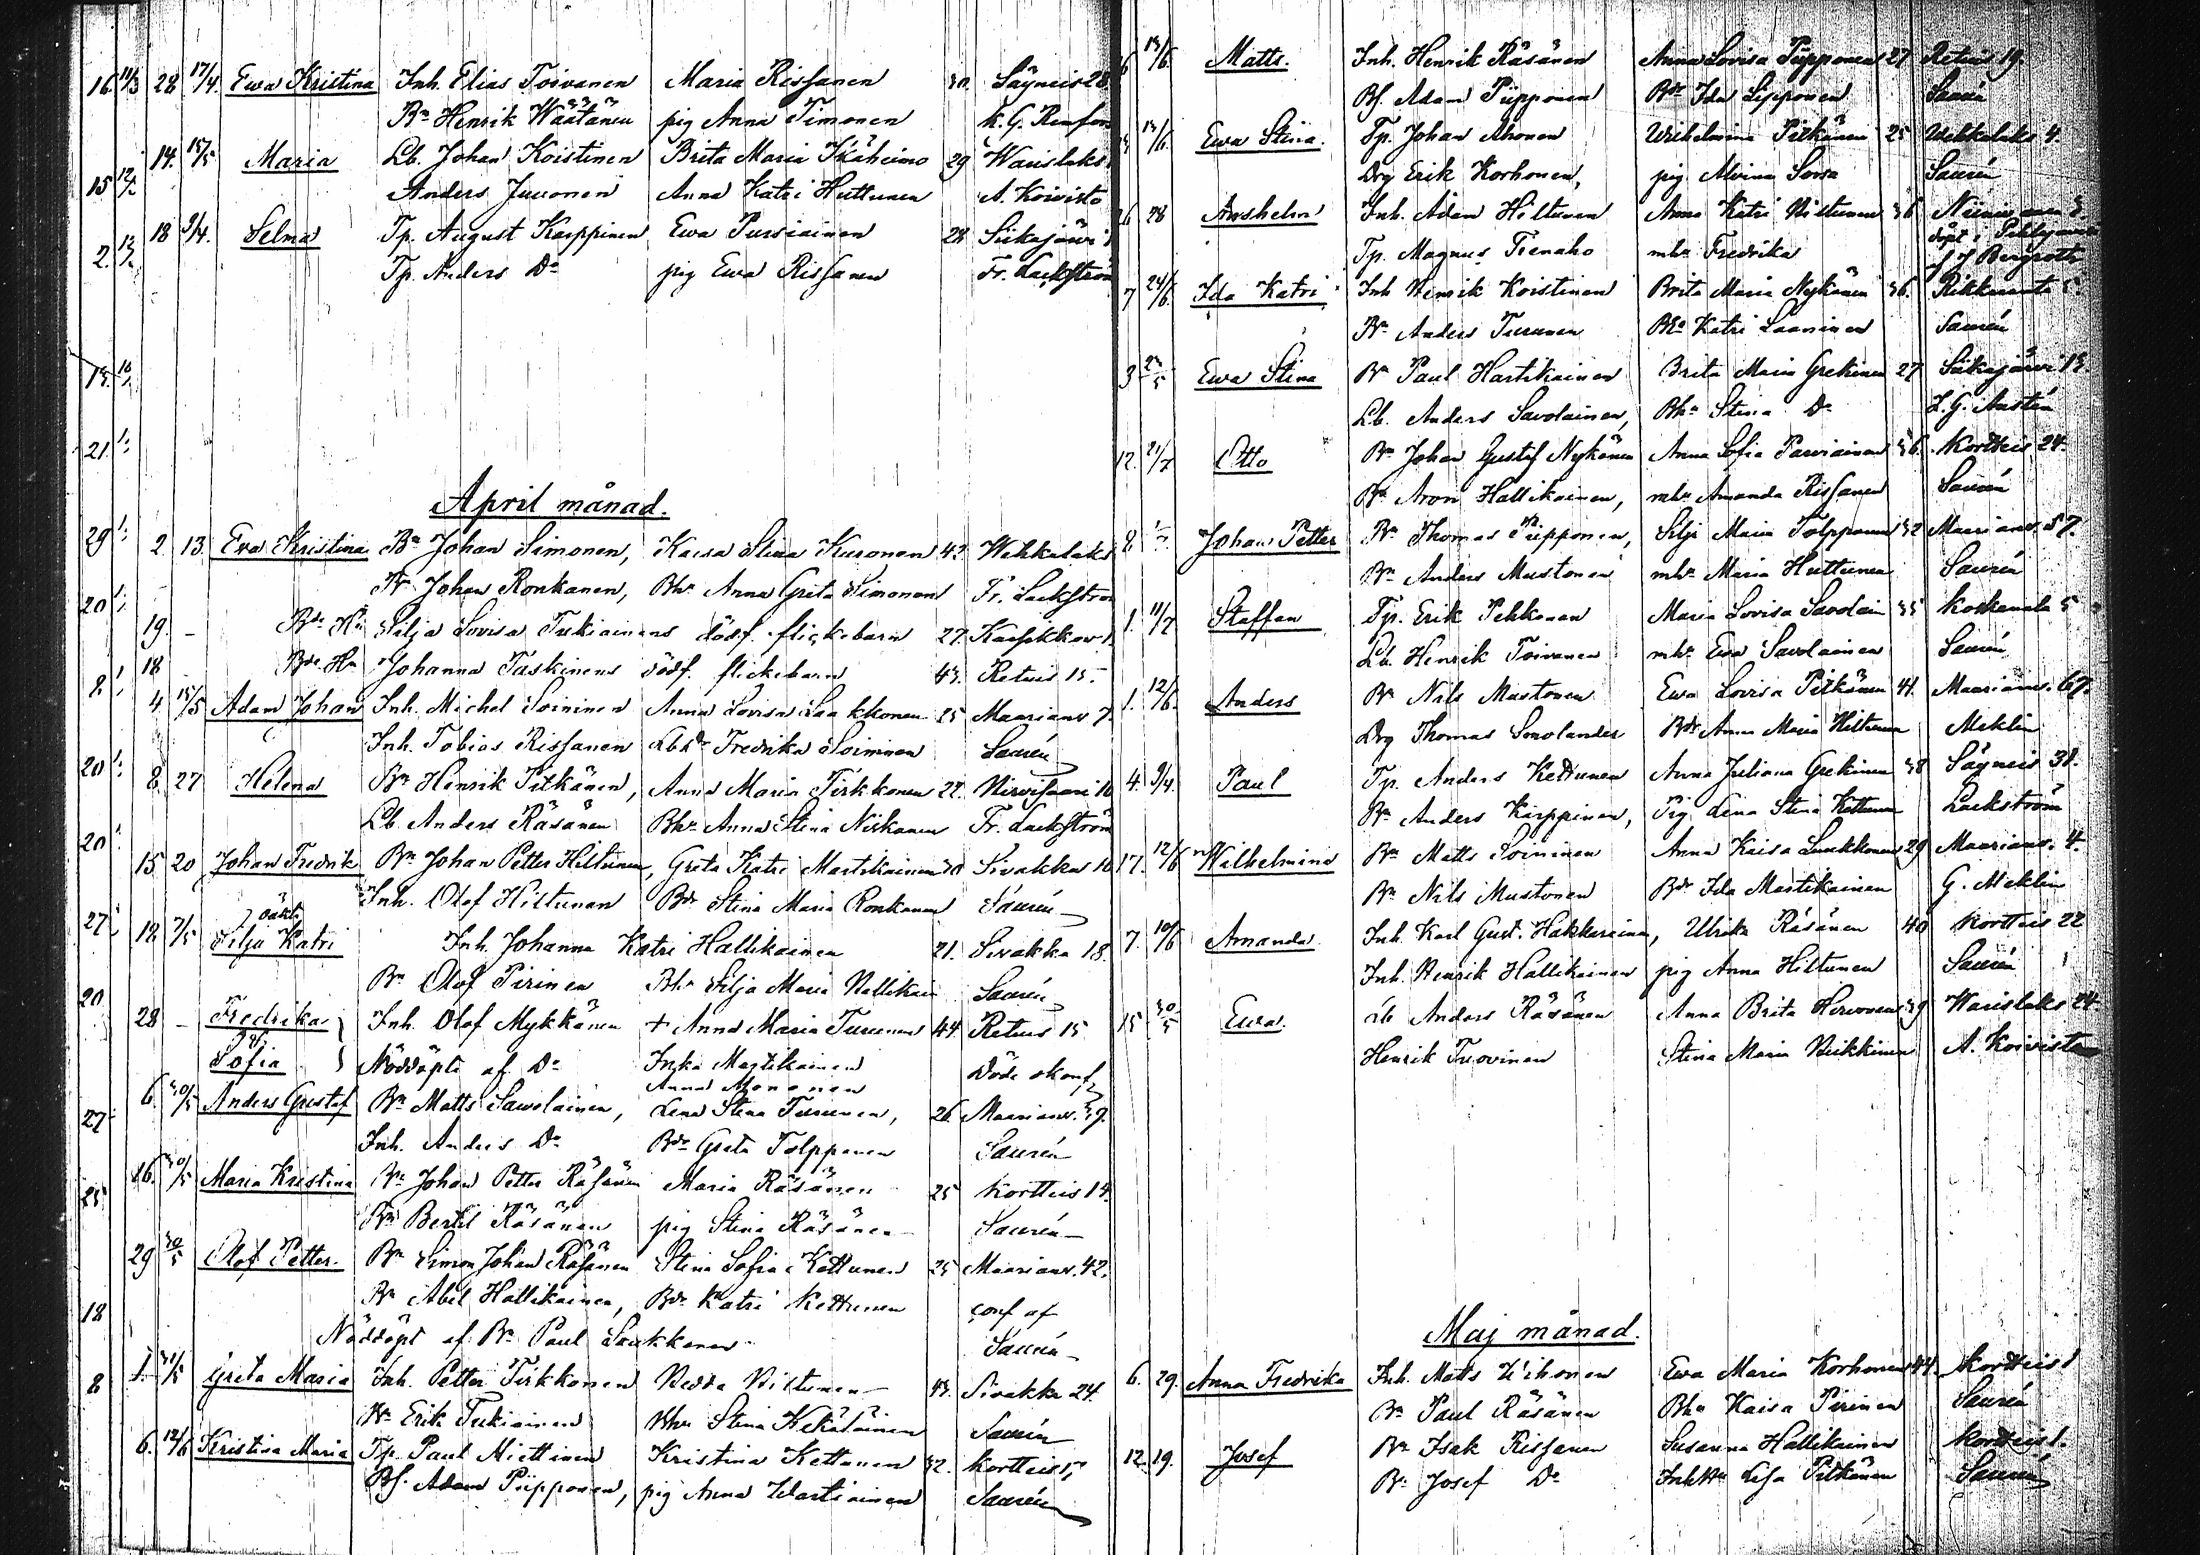 16. 11/3 28 17/4. Ewa Kristina Inh. Elias Toivanen Maria Rissanen 30. Säyneis 28
Bn Henrik Wäätänen pig Anna Timonen K. G. Renfors
14. 15/5 Maria Lb. Johan Koistinen Brita Maria Ikäheimo 29 Warislaks
15 Anders Juvonen Anna Katri Huttunen A. Koivisto
18 9/4. Selma Tp. August Karppinen Ewa Pursiainen 28 Siikajärvi
2. Tp. Anders Do pig Ewa Rissanen Fr. Lackström
21
April månad.
29 2 13. Eva Kristina Bn Johan Simonen, Kaisa Stina Kuronen 42 Wehkalaks
Bn Johan Ronkanen, Bhu Anna Greta Simonen Fr. Lackström
20
19. – Silja Lovisa Tukiainens dödf. flickebarn 27. Karsikkov.
18 Johanna Taskinens dödf. flickebarn 43. Retuis 15.
8 4 15/5 Adam Johan Inh. Michel Soininen Anna Lovisa Laakkonen 25 Maarianv 7.
Inh. Tobias Rissanen Fredrika Soininen Saurén
20 8 27 Helena Bn Henrik Pitkänen, Anna Maria Tirkkonen 22. Hirvisaari 10
Lb. Anders Räsänen Bhu Anna Stina Niskanen Fr. Lackström
20
15 20 Johan Fredrik Bn Johan Petter Hiltunen, Greta Katri Martikainen 30 Sivakka 10
Inh. Olof Hiltunen Bdr Stina Maria Ronkanen Saurén
27 oäkta
18 7/5 Silja Katri Inh. Johanna Katri Hallikainen 21. Sivakka 18.
Bn Olof Pirinen Bhu Silja Maria Hallikain Saurén
20
28 – Fredrika Inh. Olof Mykkänen + Anna Maria Turunen 44. Retuis 15
Sofia Nöddöpt af Do Inka Martikainen Döde okonf
Anna Mononen
6. 30/5 Anders Gustaf Bn Matts Sawolainen, Lena Stina Turunen, 26 Maarianv. 39.
27 Inh. Anders Do Bdr Greta Tolppanen Saurén
16. 30/5 Maria Kristina Bn Johan Petter Räsänen Maria Räsänen 25 Kortteis 14.
25 Bn Bertil Räsänen pig Stina Räsänen Saurén
29 30/5 Olof Petter. Bn Simon Johan Räsänen Stina Sofia Kettunen 25 Maarianv. 42.
18 Bn Abel Hallikainen, Bdr Katri Kettunen conf af
Nöddöpt af Bn Paul Laukkanen Saurén
8 1. 31/5 Greta Maria Inh. Petter Tirkkonen Hedda Hiltunen 43. Sivakka 24.
Bn Erik Tukiainen Bhu Stina Kekäläinen Saurén
6. 12/6 Kristina Maria Tp. Paul Miettinen Kristina Kettunen 32. Kortteis
Bs. Adam Piipponen, pig Anna Wartiainen Saurén
13/6 Matts. Inh. Henrik Räsänen Anna Lovisa Piipponen 27 Retuis 19.
Bs. Adam Piipponen Bdr Ida Lipponen Saurén
13/6. Ewa Stina. Tp. Johan Ahonen Wilhelmina Pitkänen 25 Wehkalaks 4.
Drg Erik Korhonen, pig Alvina Sorsa Saurén
26 28 Anshelm Inh. Adam Hiltunen Anna Katri Hiltunen 36
Tp. Magnus Tienaho mhu Fredrika af J Bergroth
7 24/6. Ida Katri Inh Henrik Koistinen Brita Maria Nykänen 36. Pikkaranta
Bn Anders Turunen Bha Katri Laaninen Saurén
3 23/5 Ewa Stina Bn Paul Hartikainen Brita Maria Grekinen 27 Siikajärvi 13.
Lb. Anders Savolainen, Bhu Stina Do L. G. Austén
12. 21/7 Otto Bn Johan Gustaf Nykänen Anna Sofia Parviainen 36. Kortteis 24.
Bn Aron Hallikainen, mhu Amanda Rissanen Saurén
8 Johan Petter Bn Thomas Piipponen, Silja Maria Tolppanen 32 Maarianv. 57.
Bn Anders Mustonen mhu Maria Huttunen Saurén
1. 11/7 Staffan Tp. Erik Pehkonen Maria Lovisa Savolain 35 Koskamala 5
Lb. Henrik Toivanen mhu Ewa Savolainen Saurén
1. 12/6. Anders Bn Nils Mustonen Ewa Lovisa Pitkänen 41. Maarianv. 67.
Drg Thomas Smolander Bdr Anna Maria Hiltunen Meklin
4. 9/4. Paul Tp. Anders Kettunen Anna Juliana Grekinen 38 Säyneis 38.
Bn Anders Karppinen, Pig Lena Stina Kettunen Lackström
17. 12/6 Wilhelmina Bn Matts Soininen Anna Kaisa Luukkonen 29 Maarianv. 4.
Bn Nils Mustonen Bdr Ida Martikainen G. Meklin
7. 10/6 Amanda Inh. Karl Gust. Hakkarainen, Ulrika Räsänen 40 Kortteis 22
Inh. Henrik Hallikainen pig Anna Hiltunen Saurén
15 30/5 Ewa. Lb Anders Räsänen Anna Brita Hirvonen 39 Warislaks 24.
Henrik Tuovinen Stina Maria Heikkinen A. Koivisto
Maj månad.
6. 29. Anna Fredrika Inh. Matts Ihonen Ewa Maria Korhonen 44. Kortteis 1
Bn Paul Räsänen Bha Kaisa Pirinen Saurén
12. 19. Josef Bn Isak Rissanen Susanna Hallikainen Kortteis 1.
Bn Josef Do Lisa Pitkänen Saurén